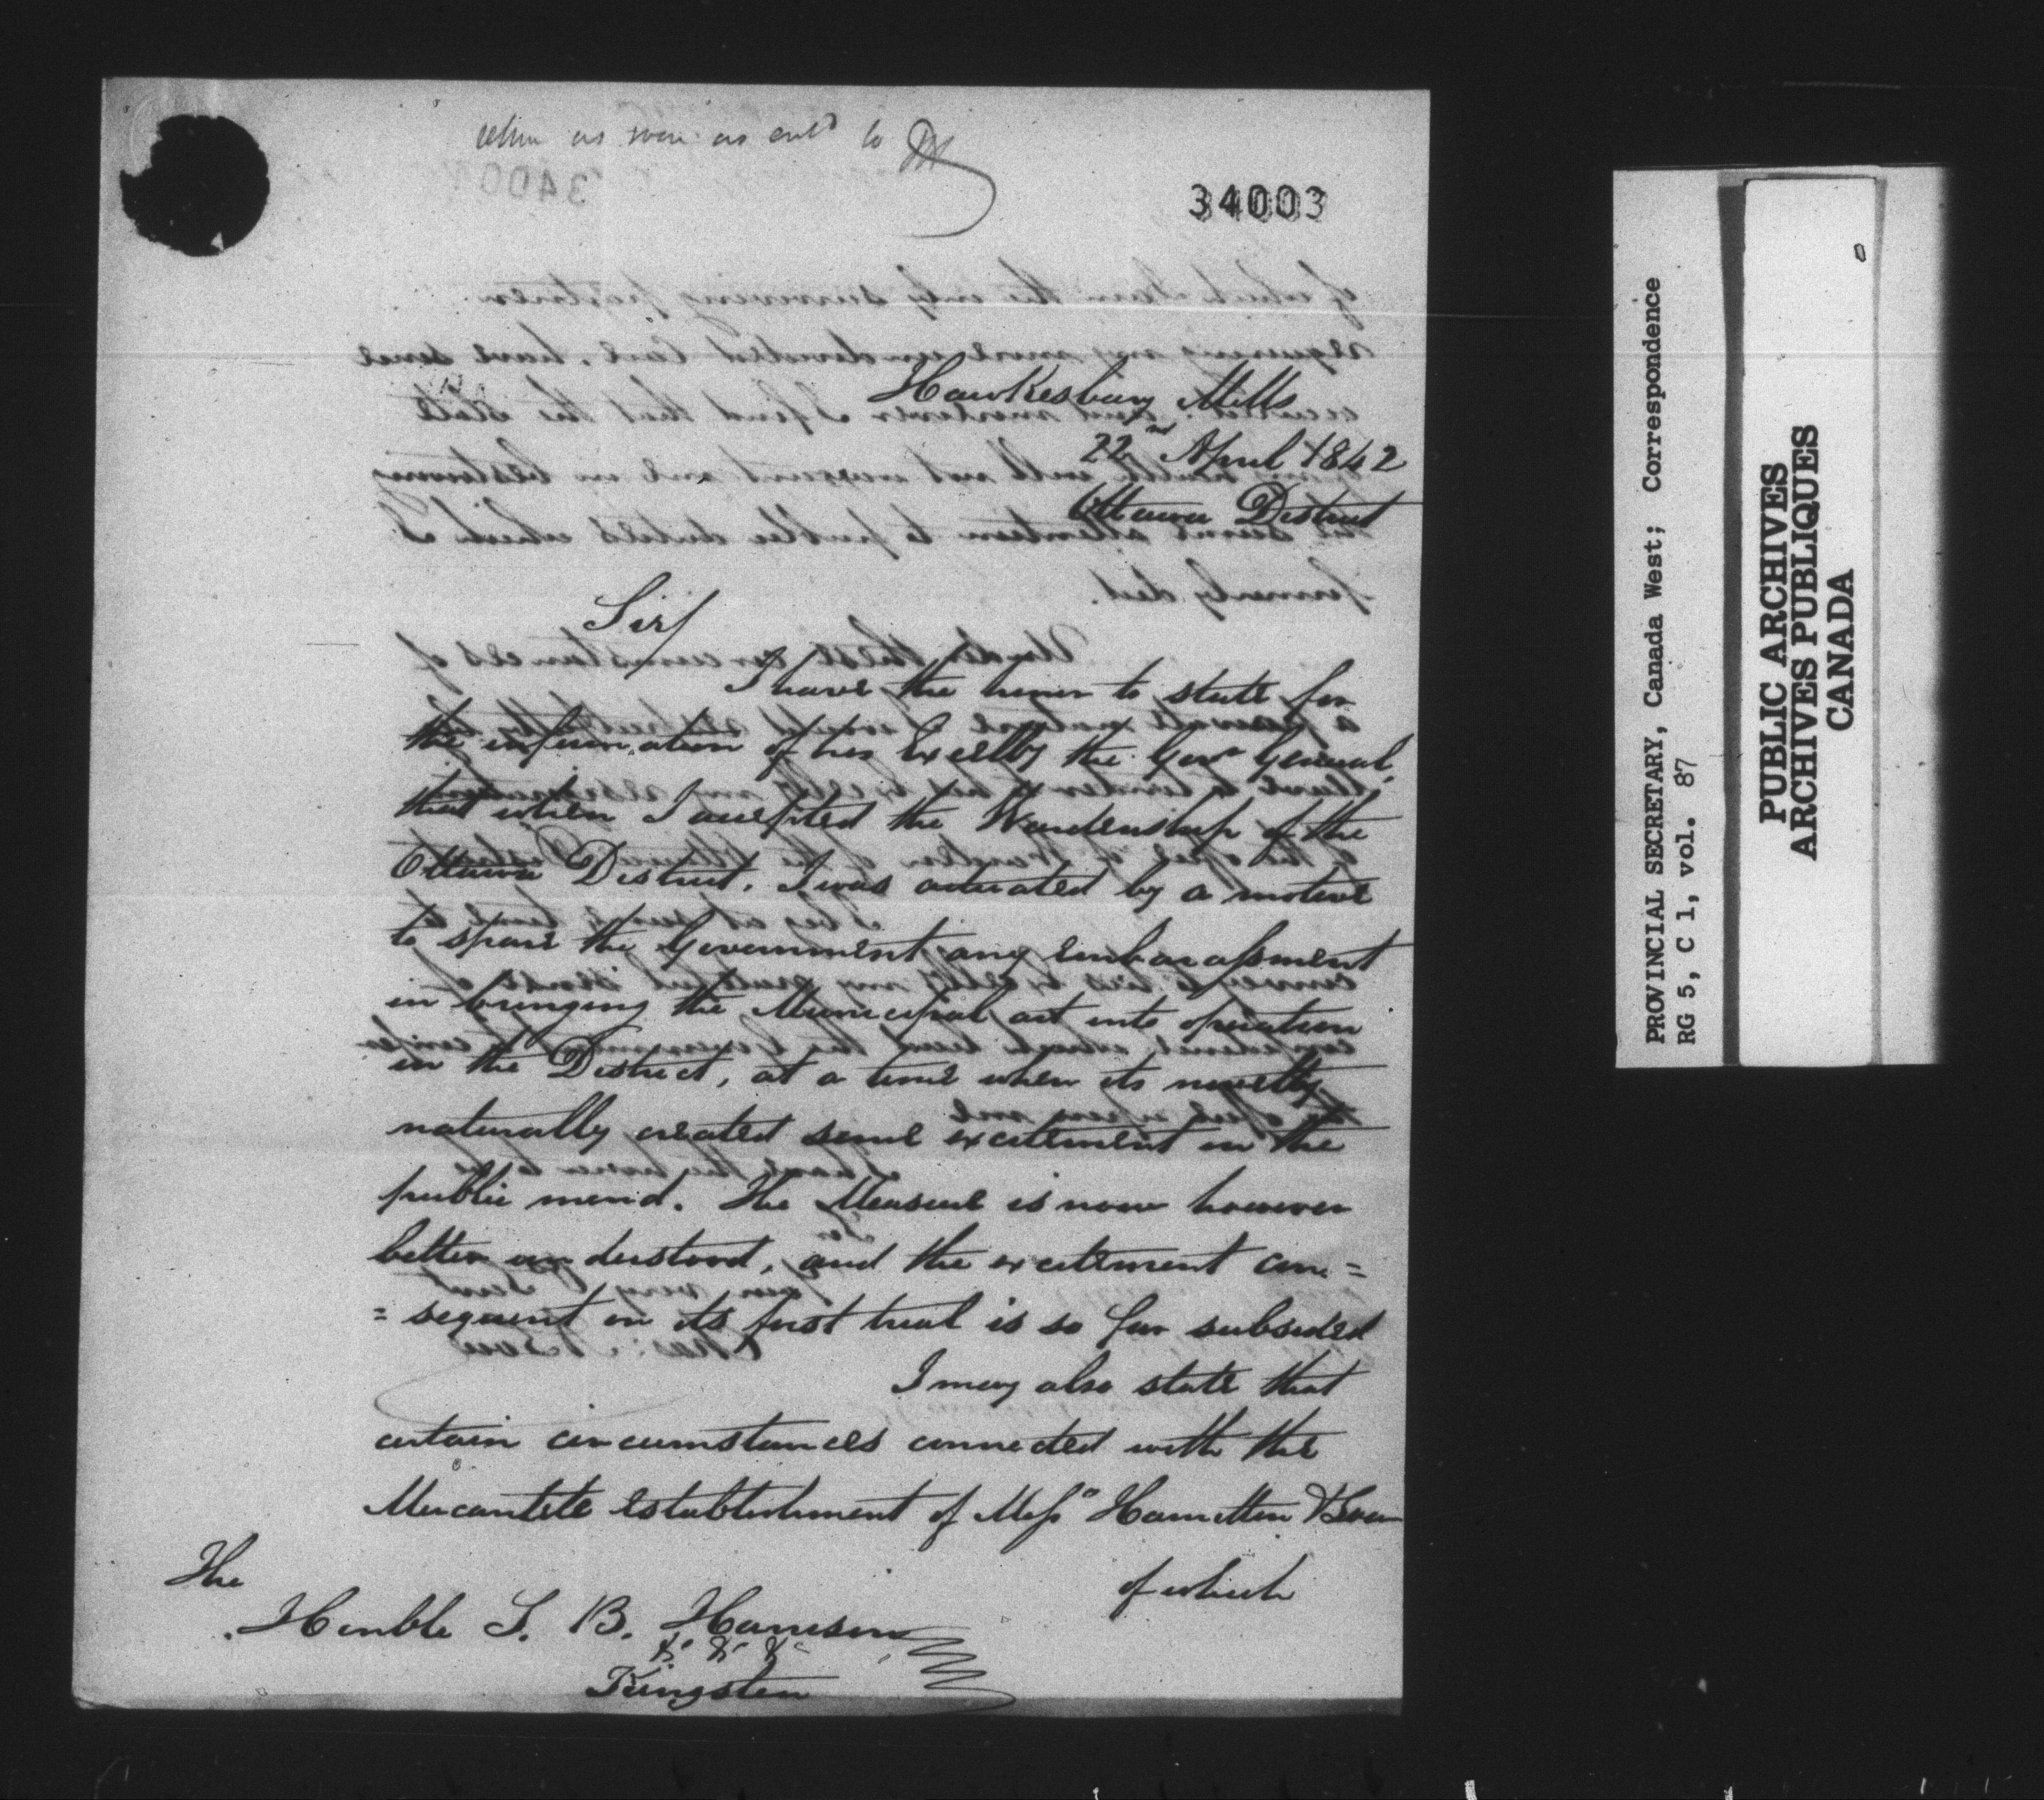 as soon as ent^d to
34003
Hawkesbury Mills
22^nd April 1842
Ottawa District
Sir/
I have the honor to state for
the information of his Excell^cy the Gov^r General,
that when I accepted the Wardenship of the
Ottawa District, I was actuated by a motive
to spare the Government any embarassment
in bringing the Municipal act into operation
in the District, at a time when its novelty
naturally created some excitement in the
public mind. The Measure is now however
better understood, and the excitement con=
=sequent on its first trial is so far subsided
I may also state that
certain circumstances connected with the
Mercantile establishment of Mess^rs Hamilton & Low
of which
The
Honble S. B. Harrison
&c &c &c
Kingston
PROVINCIAL SECRETARY, Canada West; Correspondence
RG 5, C 1, vol. 87
PUBLIC ARCHIVES
ARCHIVES PUBLIQUES
CANADA